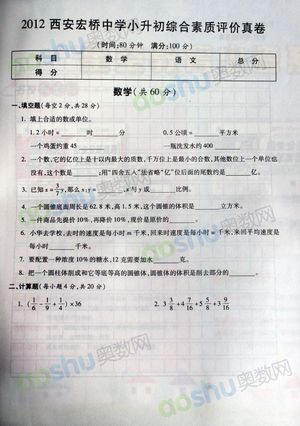 2012 西安宏桥中学小升初综合素质评价真卷
(时间:80分钟 满分:100分)
科目 数学 语文 总分
得分
数学(共60分)
一、填空题(每空2分,共28分)
1. 填上合适的数或单位。
1.2小时=____时____分 0.5公顷=____平方米
一个鸡蛋约重45____ 一瓶洗发水约400____
2. 一个数,它的亿位上是十以内最大的质数,千万位上是最小的合数,其他数位上一个单位也没有,这个数是____;用“四舍五入”法省略“亿”位后面的尾数约是____。
3. 已知x=3/7y,那么x:y=____,x与y成____比例。
4. 一个圆锥底面周长是62.8米,高1.5米,这个圆锥的体积是____立方米。
5. 一件商品先提价10%,再降价10%,现价是原价的____。
6. 小华去学校,去时的速度是每小时m千米,回来时速度是每小时n千米,来回平均速度是每小时____千米。
7. 要配置一种浓度10%的糖水,12克需要加水____克。
8. 把一个圆柱体削成和它等底等高的圆锥体,圆锥体的体积是削去部分的____。
二、计算题(每小题4分,共20分)
1. (1/6-1/9+1/4)×36 2. 3 3/8+4 7/16+5 5/8+3 9/16
aoshu 奥数网
aoshu 奥数网
aoshu 奥数网